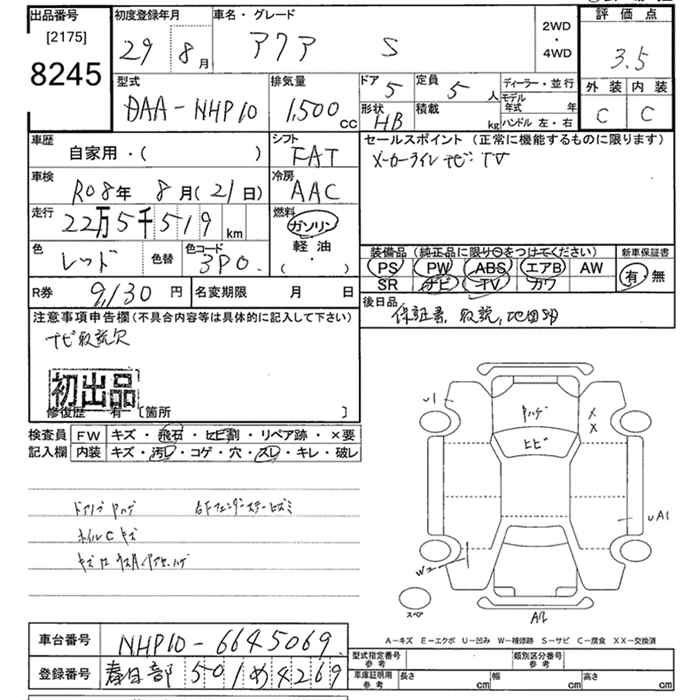 出品番号
[2175]
8245
初度登録年月
29 8月
車名・グレード
アクア S
2WD
・
4WD
評価点
3.5
外装 内装
C C
型式
DAA-NHP10
排気量
1,500cc
ドア 5
定員 5人
形状 HB
積載 kg
ディーラー・並行
モデル年式 年
ハンドル 左・右
車歴
自家用・( )
シフト
FAT
セールスポイント (正常に機能するものに限ります)
メーカー ナビ・TV
車検
R08年 8月(21日)
冷房
AAC
走行
22万5千519km
燃料
ガソリン
軽油
( ・ )
色
レッド
色替
色コード
3P0.
装備品 (純正品に限り○をつけてください)
PS PW ABS エアB AW
SR ナビ TV カワ
新車保証書
有・無
R券 9,130円
名変期限 月 日
後日品
保証書、取説、
注意事項申告欄(不具合内容等は具体的に記入して下さい)
ナビ取説欠
初出品
修復歴 有 [箇所 ]
検査員 FW キズ・飛石・ヒビ割・リペア跡・×要
記入欄 内装 キズ・汚レ・コゲ・穴・スレ・キレ・破レ
U1
ハゲ
ヒビ
X
X
UA1
W2
スペア
A/L
ホイルCキズ
A-キズ E-エクボ U-凹み W-補修跡 S-サビ C-腐食 XX-交換済
車台番号 NHP10-6645069
登録番号 春日部 501 め 4269
型式指定番号 参考
類別区分番号 参考
車庫証明用 参考
長さ cm
幅 cm
高さ cm